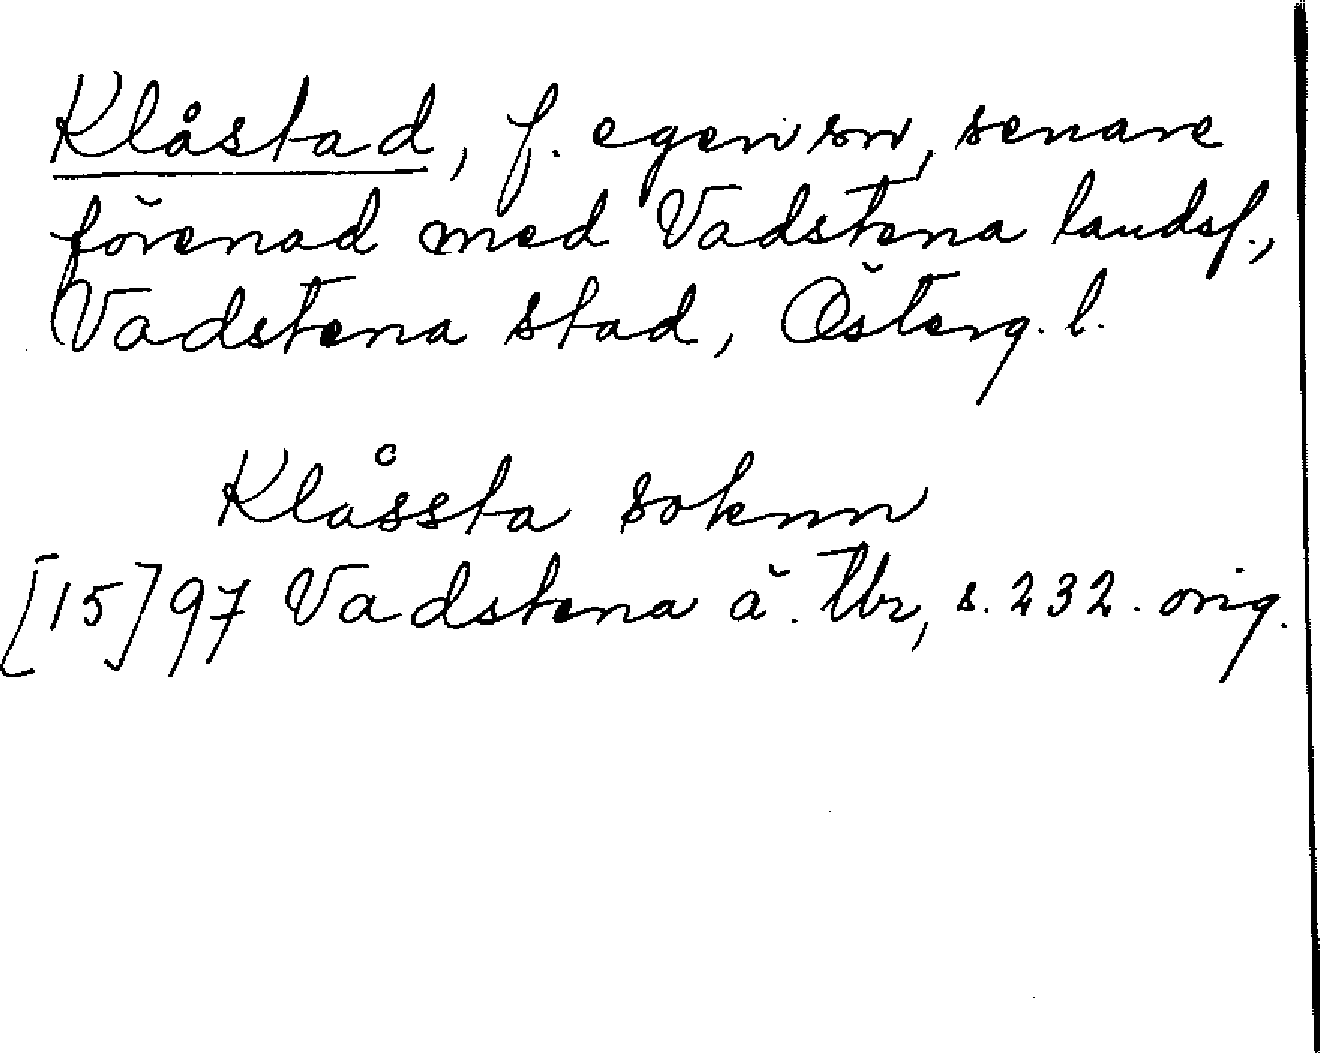 Klåstad, f. egen sn, senare
förenad med Vadstena landsf.,
Vadstena stad, Österg. l.
Klåssta soknn
[15]97 Vadstena ä. Tbr, s. 232. orig.